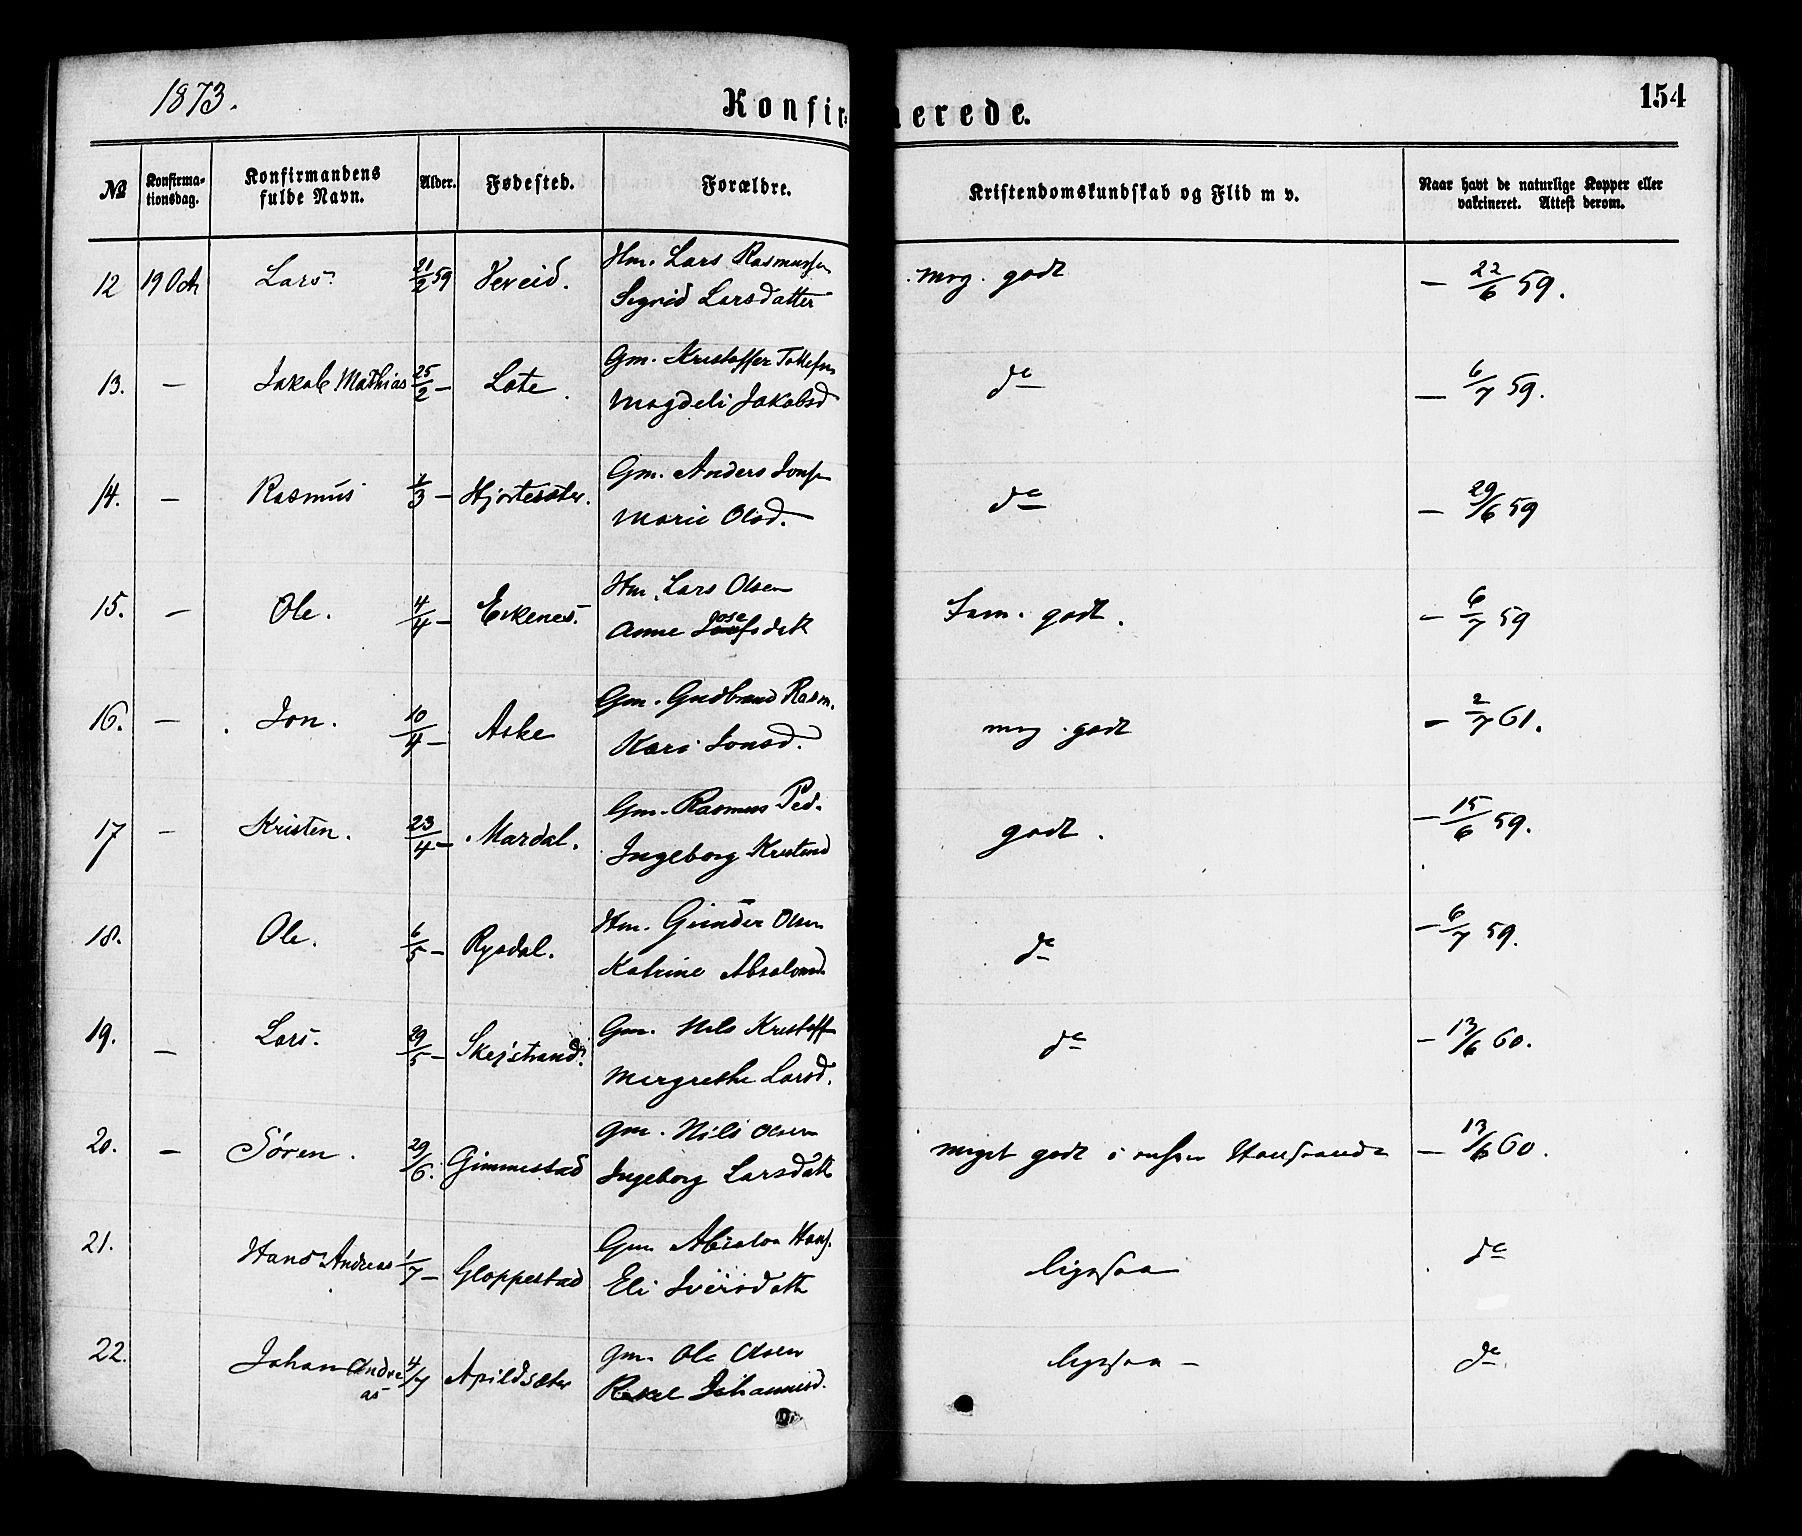 1873.
Konfirmerede.
154
№ Konfirmationsdag. Konfirmandens fulde Navn. Alder. Fødested. Forældre. Kristendomskundskab og Flid m v. Naar havt de naturlige Kopper eller vakcineret. Attest derom.
12 19 Oct Lars 21/2 59 Vereid. Hm. Lars Rasmussen mg. godt – 22/6 59.
Sigrid Larsdatter
13. – Jakob Mathias 25/2 – Lote. Gm. Kristoffer do – 6/7 59.
Magdeli Jakobsd
14. – Rasmus 1/3 – Hjortesæter. Gm. Anders Jons do – 29/6 59
Marie Olsd.
15. – Ole. 4/4 – Evkenes. Hm. Lars Olsen Tem. godt. – 6/7 59
Anne Josefsdatt
16. – Jon. 10/4 – Aske Gm. Gudbrand Rasm. mg. godt – 2/7 61.
Kari Jonsd.
17 – Kristen. 23/4 – Mardal. Gm. Rasmus Ped. godt. – 15/6 59.
Ingeborg Kristensd
18. Ole. 6/5 – Rysdal. Hm. Gunder Olsen do – 6/7 59.
Katrine Absalonsd.
19. – Lars. 29/5 – Skejstrand. Gm. Nils Kristoff do – 13/6 60.
Margrethe Larsd.
20. – Søren. 29/6. Gimmestad Gm. Nils Olsen meget godt i – 13/6 60.
Ingeborg Larsdatt
21. Hans Andreas 1/7 – Gloppestad Gm Absalon Hans. ligesaa do
Eli Iversdatt
22. Johan Andreas 4/7 Apildsæter Gm. Ole Olsen ligesaa – do
Rakel Johannesd.